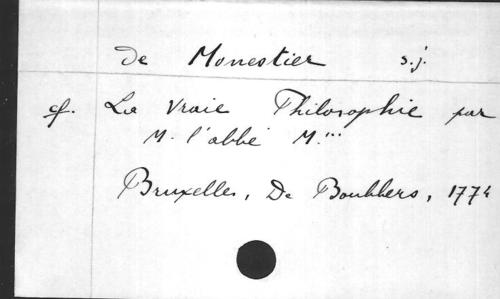 de Monestier s.j.
cf. La Vraie Philosophie par
M. l'abbé M...
Bruxelles, De Boubbers, 1774